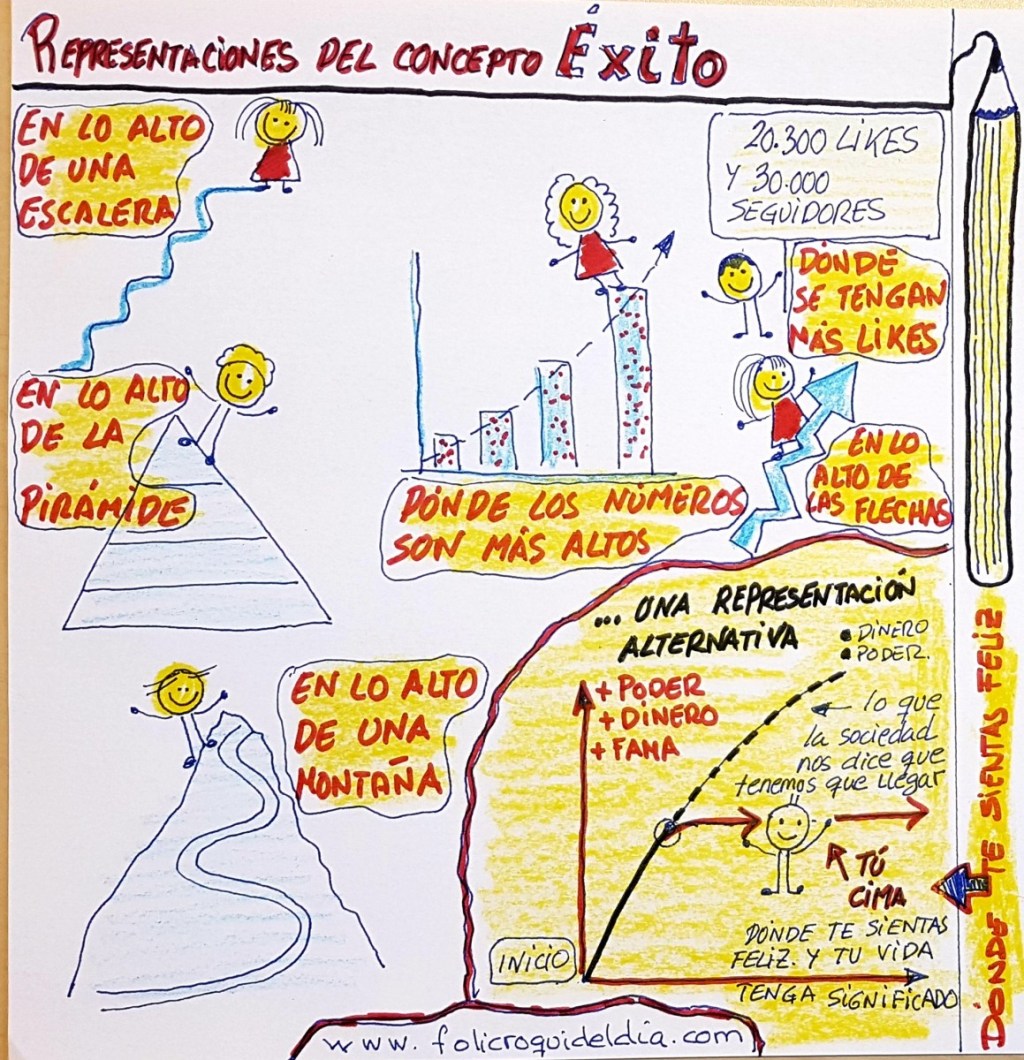 REPRESENTACIONES DEL CONCEPTO ÉXITO
EN LO ALTO
DE UNA
ESCALERA
20.300 LIKES
Y 30.000
SEGUIDORES
DÓNDE
SE TENGAN
MÁS LIKES
EN LO ALTO
DE LA
PIRÁMIDE
DÓNDE LOS NÚMEROS
SON MÁS ALTOS
EN LO
ALTO DE
LAS FLECHAS
EN LO ALTO
DE UNA
MONTAÑA
... UNA REPRESENTACIÓN
ALTERNATIVA
• DINERO
• PODER.
+ PODER
+ DINERO
+ FAMA
lo que
la sociedad
nos dice que
tenemos que llegar
TÚ
CIMA
DÓNDE TE SIENTAS
FELIZ. Y TU VIDA
TENGA SIGNIFICADO
INICIO
DÓNDE TE SIENTAS FELIZ
www.folicroquideldia.com